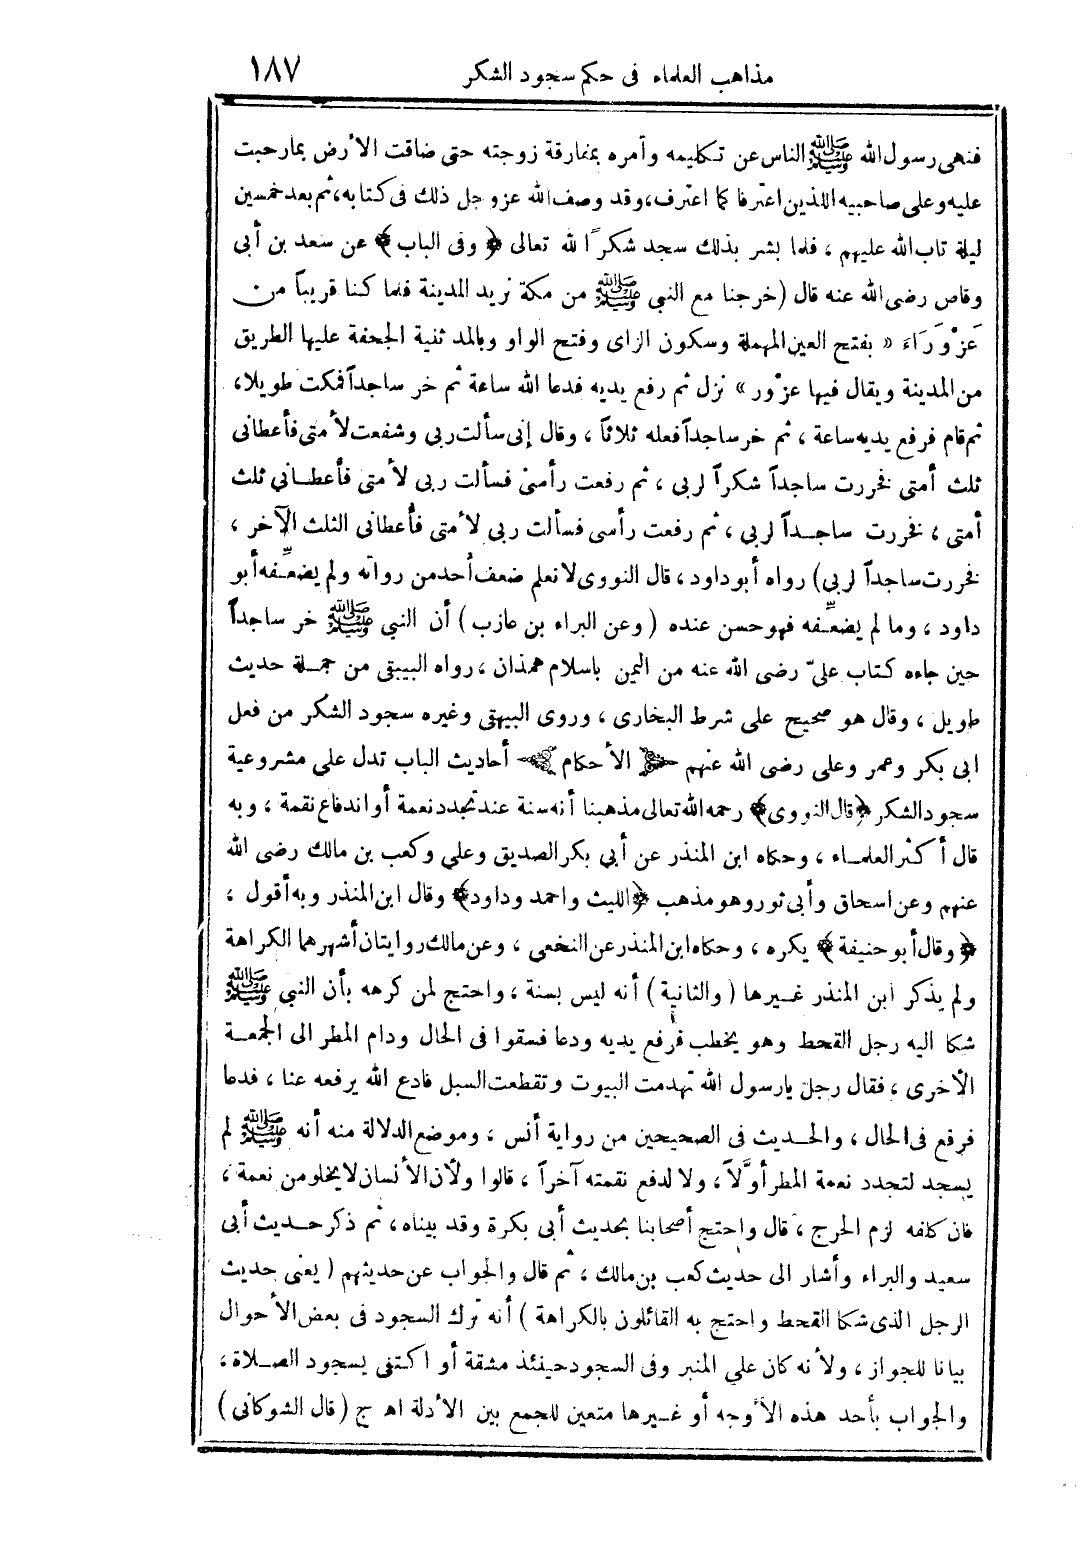 مذاهب العلماء فى حكم سجود الشكر ١٨٧
فنهى رسول الله ﷺ الناس عن تكليمه وأمره بمفارقة زوجته حتى ضاقت الأرض بما رحبت
عليه وعلى صاحبيه اللذين اعترفا كما اعترف، وقد وصف الله عز وجل ذلك فى كتابه، ثم بعد خمسين
ليلة تاب الله عليهم ، فلما بشر بذلك سجد شكرًا لله تعالى ﴿ وفى الباب﴾ عن سعد بن أبى
وقاص رضى الله عنه قال (خرجنا مع النبي ﷺ من مكة نريد المدينة فلما كنا قريباً من
عَزْوَرَاءَ « بفتح العين المهملة وسكون الزاى وفتح الواو وبالمد ثنية الجحفة عليها الطريق
من المدينة ويقال فيها عزْور » نزل ثم رفع يديه فدعا الله ساعة ثم خر ساجداً فمكث طويلا،
ثم قام فرفع يديه ساعة ، ثم خر ساجداً فعله ثلاثاً ، وقال إنى سألت ربى وشفعت لأمتى فأعطانى
ثلث أمتى فخررت ساجداً شكراً لربى ، ثم رفعت رأسى فسألت ربى لأمتى فأعطانى ثلث
أمتى ، فخررت ساجداً لربى ، ثم رفعت رأسى فسألت ربى لأمتى فأعطانى الثلث الآخر ،
فخررت ساجداً لربى) رواه أبو داود ، قال النووى لا نعلم ضعف أحد من رواته ولم يضعِّفه أبو
داود ، وما لم يضعِّفه فهو حسن عنده (وعن البراء بن عازب) أن النبي ﷺ خر ساجداً
حين جاءه كتاب علىّ رضى الله عنه من اليمن باسلام همذان ، رواه البيهقى من جملة حديث
طويل ، وقال هو صحيح على شرط البخارى ، وروى البيهقى وغيره سجود الشكر من فعل
ابى بكر وعمر وعلى رضى الله عنهم ﴿ الأحكام ﴾ أحاديث الباب تدل على مشروعية
سجود الشكر ﴿قال النووى﴾ رحمه الله تعالى مذهبنا أنه سنة عند تجدد نعمة أو اندفاع نقمة ، وبه
قال أكثر العلماء ، وحكاه ابن المنذر عن أبي بكر الصديق وعلي وكعب بن مالك رضى الله
عنهم وعن اسحاق وأبى ثور وهو مذهب ﴿الليث واحمد وداود﴾ وقال ابن المنذر وبه أقول ،
﴿ وقال أبو حنيفة ﴾ يكره ، وحكاه ابن المنذر عن النخعي ، وعن مالك روايتان أشهرهما الكراهة
ولم يذكر ابن المنذر غيرها (والثانية) أنه ليس بسنة ، واحتج لمن كرهه بأن النبي ﷺ
شكا اليه رجل القحط وهو يخطب فرفع يديه ودعا فسقوا فى الحال ودام المطر الى الجمعة
الأخرى ، فقال رجل يارسول الله تهدمت البيوت وتقطعت السبل فادع الله يرفعه عنا ، فدعا
فرفع فى الحال ، والحديث فى الصحيحين من رواية أنس ، وموضع الدلالة منه أنه ﷺ لم
يسجد لتجدد نعمة المطر أوَّلاً ، ولا لدفع نقمته آخراً ، قالوا ولأن الأنسان لا يخلو من نعمة ،
فان كلفه لزم الحرج ، قال واحتج أصحابنا بحديث أبى بكرة وقد بيناه ، ثم ذكر حديث أبى
سعيد والبراء وأشار الى حديث كعب بن مالك ، ثم قال والجواب عن حديثهم ( يعنى حديث
الرجل الذى شكا القحط واحتج به القائلون بالكراهة ) أنه ترك السجود فى بعض الأحوال
بيانا للجواز ، ولأنه كان علي المنبر وفى السجود حينئذ مشقة أو اكتفى بسجود الصلاة ،
والجواب بأحد هذه الأوجه أو غيرها متعين للجمع بين الأدلة اهـ ج (قال الشوكانى)